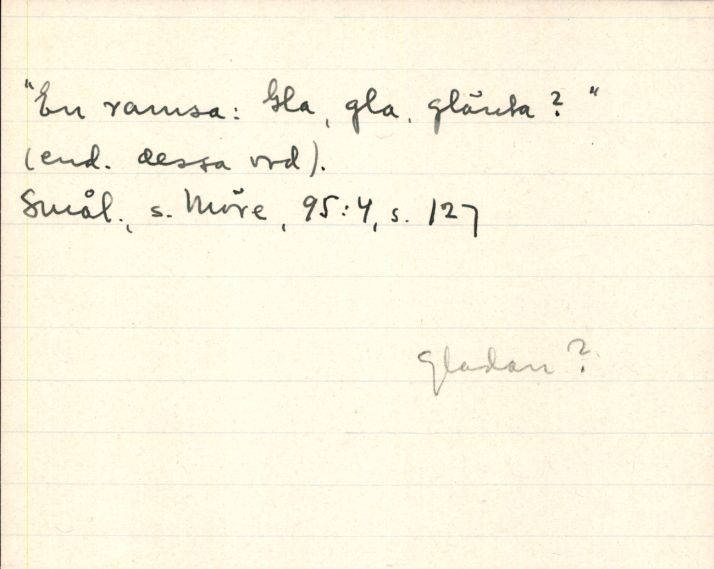 "En ramsa: Gla, gla, glänta? "
(end. dessa ord).
Smål., s. Möre, 95:4, s. 127
gladan?